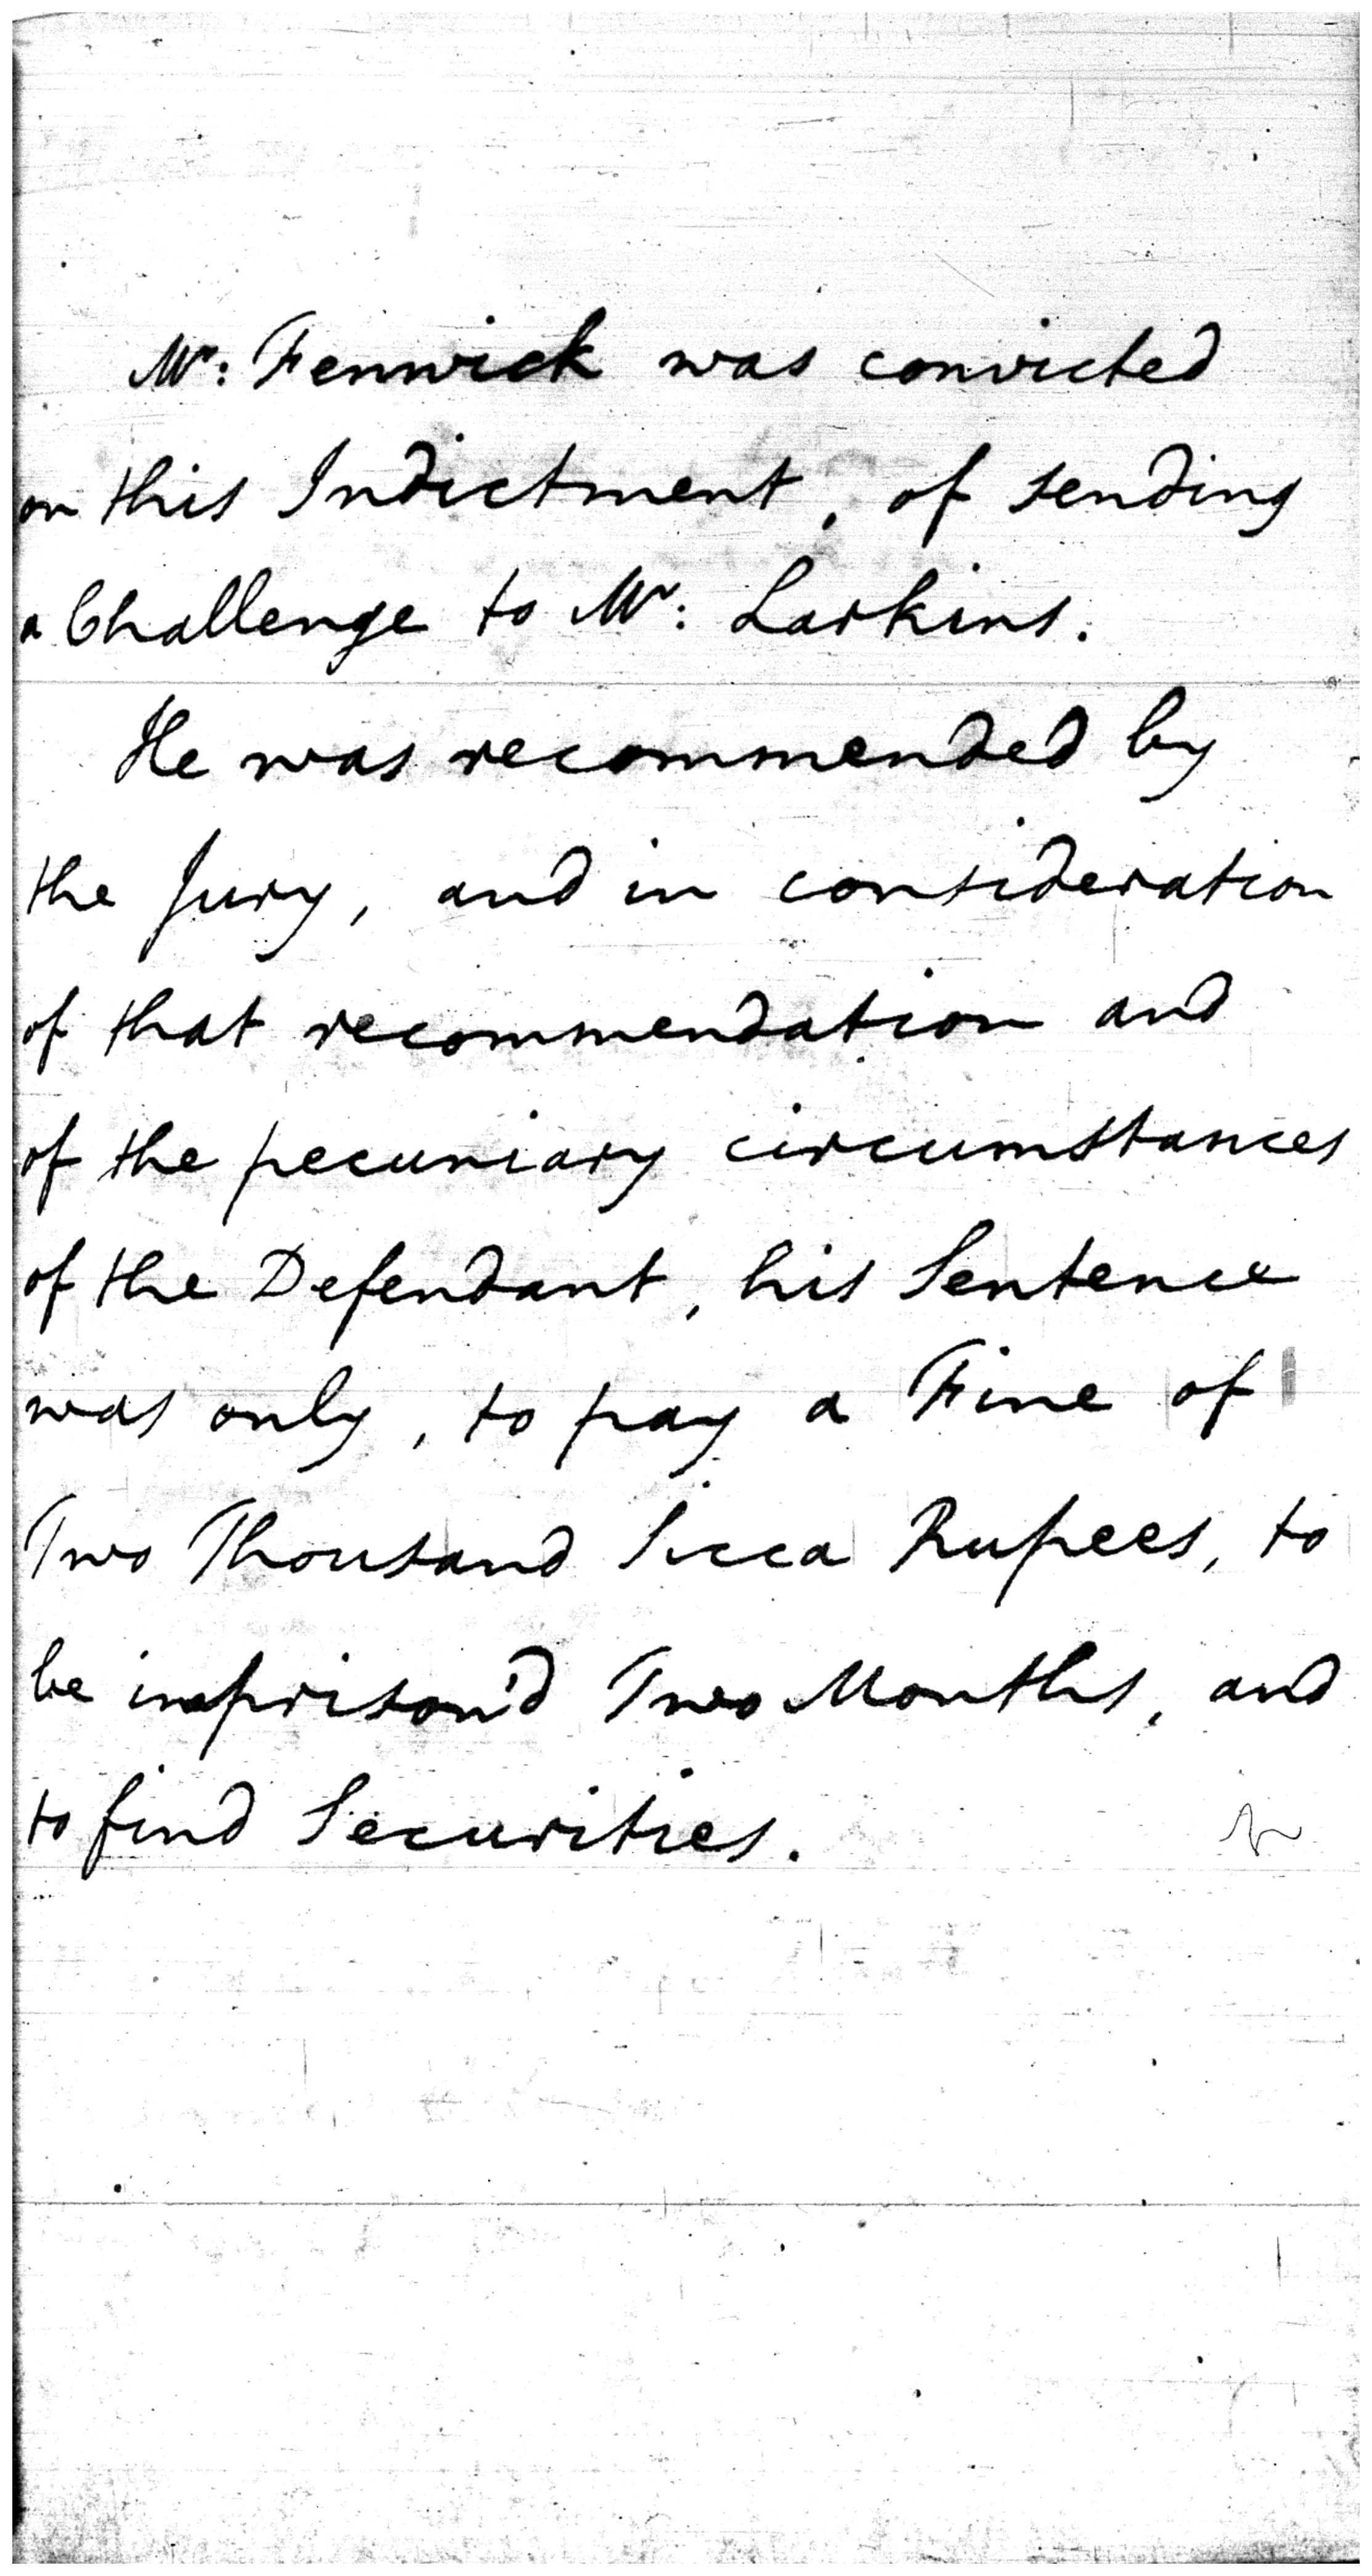 Mr: Fenwick was convicted
on this Indictment, of sending
a Challenge to Mr: Larkins.
He was recommended by
the Jury, and in consideration
of that recommendation and
of the pecuniary circumstances
of the Defendant, his Sentence
was only, to pay a Fine of
Two Thousand Sicca Rupees, to
be imprison'd Two Months, and
to find Securities.